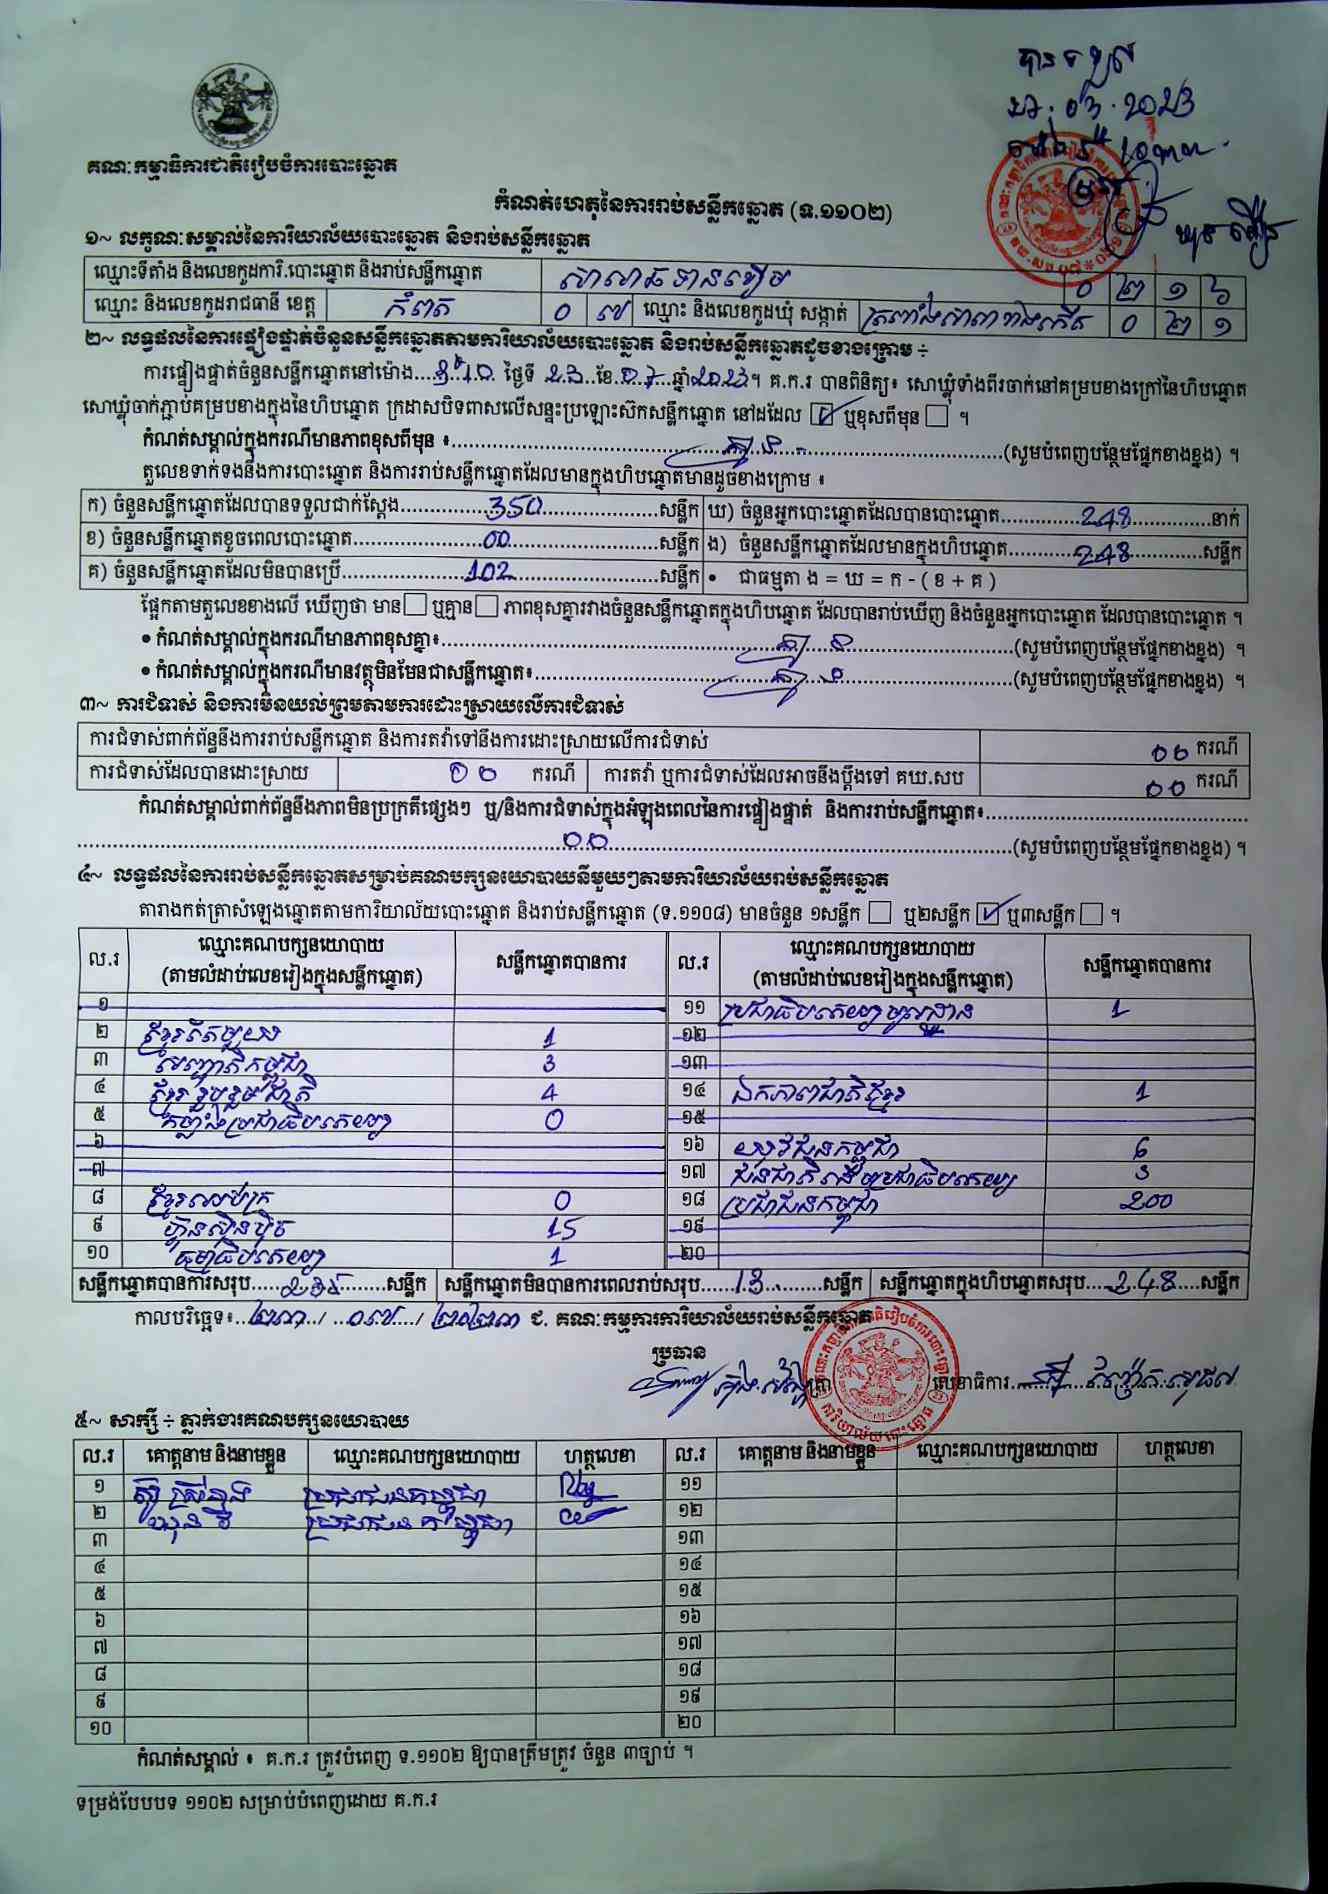 បានទទួល
២៣.០៧.2023
គណៈកម្មាធិការជាតិរៀបចំការបោះឆ្នោត
កំណត់ហេតុនៃការរាប់សន្លឹកឆ្នោត (ទ.១១០២)
១~ លក្ខណៈសម្គាល់នៃការិយាល័យបោះឆ្នោត និងរាប់សន្លឹកឆ្នោត
ឈ្មោះទីតាំង និងលេខកូដការិ.បោះឆ្នោត និងរាប់សន្លឹកឆ្នោត សាលាធទានខៀម ០ ២ ១ ៦
ឈ្មោះ និងលេខកូដរាជធានី ខេត្ត កំពត ០ ៧ ឈ្មោះ និងលេខកូដឃុំ សង្កាត់ ត្រពាំងសាលាខាងកើត ០ ២ ១
២~ លទ្ធផលនៃការផ្ទៀងផ្ទាត់ចំនួនសន្លឹកឆ្នោតតាមការិយាល័យបោះឆ្នោត និងរាប់សន្លឹកឆ្នោតដូចខាងក្រោម ÷
ការផ្ទៀងផ្ទាត់ចំនួនសន្លឹកឆ្នោតនៅម៉ោង...3:10 ថ្ងៃទី 23 ខែ 07 ឆ្នាំ 2023។ គ.ក.រ បានពិនិត្យ៖ សោឃ្លុំទាំងពីរចាក់នៅគម្របខាងក្រៅនៃហិបឆ្នោត
សោឃ្លុំចាក់ភ្ជាប់គម្របខាងក្នុងនៃហិបឆ្នោត ក្រដាសបិទពាសលើសន្ទះប្រឡោះស៊កសន្លឹកឆ្នោត នៅដដែល ☑ ឬខុសពីមុន ☐ ។
កំណត់សម្គាល់ក្នុងករណីមានភាពខុសពីមុន ៖ គ្មាន (សូមបំពេញបន្ថែមផ្នែកខាងខ្នង) ។
តួលេខទាក់ទងនឹងការបោះឆ្នោត និងការរាប់សន្លឹកឆ្នោតដែលមានក្នុងហិបឆ្នោតមានដូចខាងក្រោម ៖
ក) ចំនួនសន្លឹកឆ្នោតដែលបានទទួលជាក់ស្តែង 350 សន្លឹក ឃ) ចំនួនអ្នកបោះឆ្នោតដែលបានបោះឆ្នោត 248 នាក់
ខ) ចំនួនសន្លឹកឆ្នោតខូចពេលបោះឆ្នោត 00 សន្លឹក ង) ចំនួនសន្លឹកឆ្នោតដែលមានក្នុងហិបឆ្នោត 248 សន្លឹក
គ) ចំនួនសន្លឹកឆ្នោតដែលមិនបានប្រើ 102 សន្លឹក • ជាធម្មតា ង = ឃ = ក - ( ខ + គ )
ផ្អែកតាមតួលេខខាងលើ ឃើញថា មាន ☐ ឬគ្មាន ☐ ភាពខុសគ្នារវាងចំនួនសន្លឹកឆ្នោតក្នុងហិបឆ្នោត ដែលបានរាប់ឃើញ និងចំនួនអ្នកបោះឆ្នោត ដែលបានបោះឆ្នោត ។
• កំណត់សម្គាល់ក្នុងករណីមានភាពខុសគ្នា៖ គ្មាន (សូមបំពេញបន្ថែមផ្នែកខាងខ្នង) ។
• កំណត់សម្គាល់ក្នុងករណីមានវត្ថុមិនមែនជាសន្លឹកឆ្នោត៖ គ្មាន (សូមបំពេញបន្ថែមផ្នែកខាងខ្នង) ។
៣~ ការជំទាស់ និងការមិនយល់ព្រមតាមការដោះស្រាយលើការជំទាស់
ការជំទាស់ពាក់ព័ន្ធនឹងការរាប់សន្លឹកឆ្នោត និងការតវ៉ាទៅនឹងការដោះស្រាយលើការជំទាស់ ០០ ករណី
ការជំទាស់ដែលបានដោះស្រាយ ០០ ករណី ការតវ៉ា ឬការជំទាស់ដែលអាចនឹងប្តឹងទៅ គឃ.សប ០០ ករណី
កំណត់សម្គាល់ពាក់ព័ន្ធនឹងភាពមិនប្រក្រតីផ្សេងៗ ឬ/និងការជំទាស់ក្នុងអំឡុងពេលនៃការផ្ទៀងផ្ទាត់ និងការរាប់សន្លឹកឆ្នោត៖
០០ (សូមបំពេញបន្ថែមផ្នែកខាងខ្នង) ។
៤~ លទ្ធផលនៃការរាប់សន្លឹកឆ្នោតសម្រាប់គណបក្សនយោបាយនីមួយៗតាមការិយាល័យរាប់សន្លឹកឆ្នោត
តារាងកត់ត្រាសំឡេងឆ្នោតតាមការិយាល័យបោះឆ្នោត និងរាប់សន្លឹកឆ្នោត (ទ.១១០៨) មានចំនួន ១សន្លឹក ☐ ឬ២សន្លឹក ☑ ឬ៣សន្លឹក ☐ ។
ល.រ ឈ្មោះគណបក្សនយោបាយ (តាមលំដាប់លេខរៀងក្នុងសន្លឹកឆ្នោត) សន្លឹកឆ្នោតបានការ ល.រ ឈ្មោះគណបក្សនយោបាយ (តាមលំដាប់លេខរៀងក្នុងសន្លឹកឆ្នោត) សន្លឹកឆ្នោតបានការ
១ ១១ ប្រជាធិបតេយ្យមូលដ្ឋាន 1
២ ខ្មែរតែមួយ 1 ១២
៣ សញ្ជាតិកម្ពុជា 3 ១៣
៤ ខ្មែររួបរួមជាតិ 4 ១៤ ឯកភាពជាតិខ្មែរ 1
៥ កម្លាំងប្រជាធិបតេយ្យ 0 ១៥
៦ ១៦ យុវជនកម្ពុជា 6
៧ ១៧ ជនជាតិដើមប្រជាធិបតេយ្យ 3
៨ ខ្មែរឈប់ក្រ 0 ១៨ ប្រជាជនកម្ពុជា 200
៩ ហ៊្វុនស៊ិនប៉ិច 15 ១៩
១០ ធម្មាធិបតេយ្យ 1 ២០
សន្លឹកឆ្នោតបានការសរុប 235 សន្លឹក សន្លឹកឆ្នោតមិនបានការពេលរាប់សរុប 13 សន្លឹក សន្លឹកឆ្នោតក្នុងហិបឆ្នោតសរុប 248 សន្លឹក
កាលបរិច្ឆេទ៖ ២៣ / ០៧ / ២០២៣ ជ. គណៈកម្មការការិយាល័យរាប់សន្លឹកឆ្នោត
ប្រធាន
លេខាធិការ
៥~ សាក្សី ÷ ភ្នាក់ងារគណបក្សនយោបាយ
ល.រ គោត្តនាម និងនាមខ្លួន ឈ្មោះគណបក្សនយោបាយ ហត្ថលេខា ល.រ គោត្តនាម និងនាមខ្លួន ឈ្មោះគណបក្សនយោបាយ ហត្ថលេខា
១ ប្រជាជនកម្ពុជា ១១
២ ប្រជាជនកម្ពុជា ១២
៣ ១៣
៤ ១៤
៥ ១៥
៦ ១៦
៧ ១៧
៨ ១៨
៩ ១៩
១០ ២០
កំណត់សម្គាល់ ៖ គ.ក.រ ត្រូវបំពេញ ទ.១១០២ ឱ្យបានត្រឹមត្រូវ ចំនួន ៣ច្បាប់ ។
ទម្រង់បែបបទ ១១០២ សម្រាប់បំពេញដោយ គ.ក.រ